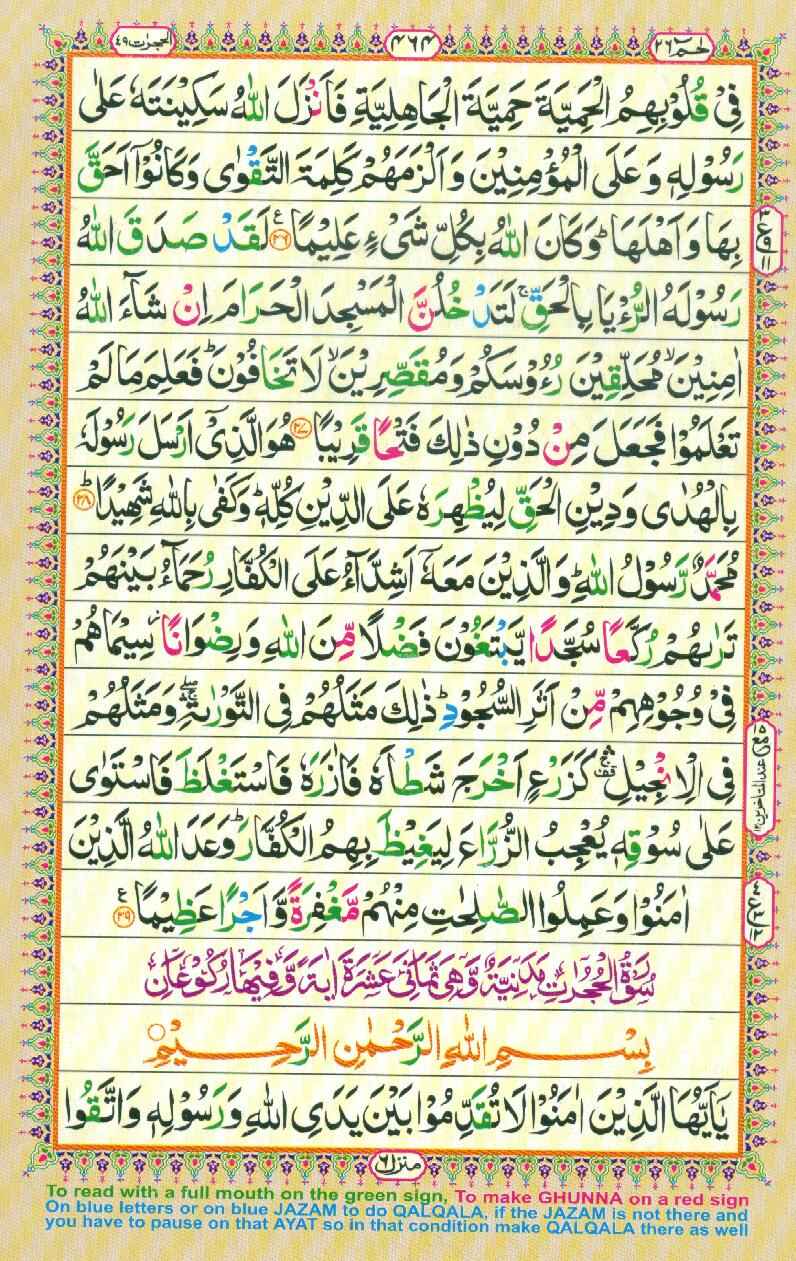 حٰمٓ ٢٦
٤٦٤
الحجرٰت ٤٩
فِیْ قُلُوْبِهِمُ الْحَمِیَّةَ حَمِیَّةَ الْجَاهِلِیَّةِ فَاَنْزَلَ اللّٰهُ سَكِیْنَتَهٗ عَلٰی
رَسُوْلِهٖ وَ عَلَی الْمُؤْمِنِیْنَ وَ اَلْزَمَهُمْ كَلِمَةَ التَّقْوٰی وَ كَانُوْۤا اَحَقَّ
بِهَا وَ اَهْلَهَا ؕ وَ كَانَ اللّٰهُ بِكُلِّ شَیْءٍ عَلِیْمًا ۧ‏﴿۲۶﴾ لَقَدْ صَدَقَ اللّٰهُ
رَسُوْلَهُ الرُّءْیَا بِالْحَقِّ ۚ لَتَدْخُلُنَّ الْمَسْجِدَ الْحَرَامَ اِنْ شَآءَ اللّٰهُ
اٰمِنِیْنَ ۙ مُحَلِّقِیْنَ رُءُوْسَكُمْ وَ مُقَصِّرِیْنَ ۙ لَا تَخَافُوْنَ ؕ فَعَلِمَ مَا لَمْ
تَعْلَمُوْا فَجَعَلَ مِنْ دُوْنِ ذٰلِكَ فَتْحًا قَرِیْبًا ﴿۲۷﴾ هُوَ الَّذِیْۤ اَرْسَلَ رَسُوْلَهٗ
بِالْهُدٰی وَ دِیْنِ الْحَقِّ لِیُظْهِرَهٗ عَلَی الدِّیْنِ كُلِّهٖ ؕ وَ كَفٰی بِاللّٰهِ شَهِیْدًا ؕ﴿۲۸﴾
مُحَمَّدٌ رَّسُوْلُ اللّٰهِ ؕ وَ الَّذِیْنَ مَعَهٗۤ اَشِدَّآءُ عَلَی الْكُفَّارِ رُحَمَآءُ بَیْنَهُمْ
تَرٰىهُمْ رُكَّعًا سُجَّدًا یَّبْتَغُوْنَ فَضْلًا مِّنَ اللّٰهِ وَ رِضْوَانًا ؗ سِیْمَاهُمْ
فِیْ وُجُوْهِهِمْ مِّنْ اَثَرِ السُّجُوْدِ ؕ ذٰلِكَ مَثَلُهُمْ فِی التَّوْرٰىةِ ۛۖۚ وَ مَثَلُهُمْ
فِی الْاِنْجِیْلِ ۛ۫ۚ كَزَرْعٍ اَخْرَجَ شَطْـَٔهٗ فَاٰزَرَهٗ فَاسْتَغْلَظَ فَاسْتَوٰی
عَلٰی سُوْقِهٖ یُعْجِبُ الزُّرَّاعَ لِیَغِیْظَ بِهِمُ الْكُفَّارَ ؕ وَعَدَ اللّٰهُ الَّذِیْنَ
اٰمَنُوْا وَ عَمِلُوا الصّٰلِحٰتِ مِنْهُمْ مَّغْفِرَةً وَّ اَجْرًا عَظِیْمًا ۧ﴿۲۹﴾
سُوْرَةُ الْحُجُرٰتِ مَدَنِیَّةٌ وَّ هِیَ ثَمَانِیَ عَشَرَةَ اٰیَةً وَّ فِیْهَا رُكُوْعَانِ
بِسْمِ اللّٰهِ الرَّحْمٰنِ الرَّحِیْمِ
یٰۤاَیُّهَا الَّذِیْنَ اٰمَنُوْا لَا تُقَدِّمُوْا بَیْنَ یَدَیِ اللّٰهِ وَ رَسُوْلِهٖ وَ اتَّقُوا
منزل ٦
To read with a full mouth on the green sign, To make GHUNNA on a red sign
On blue letters or on blue JAZAM to do QALQALA, if the JAZAM is not there and
you have to pause on that AYAT so in that condition make QALQALA there as well